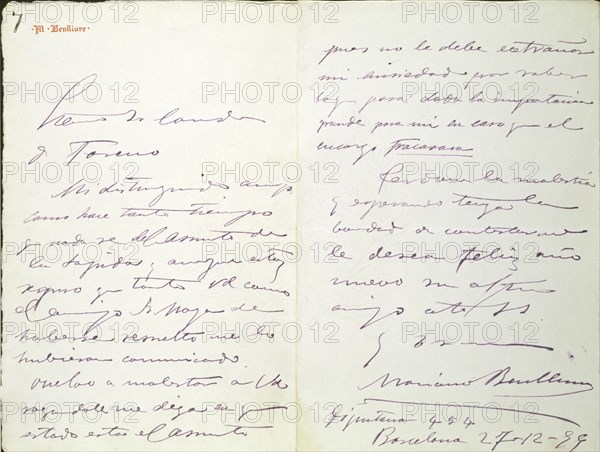 7
M. Benlliure
Excmo Sr Conde
de Toreno
Mi distinguido amigo
como hace tanto tiempo
q nada se del asunto de
la lapida, aunque estoy
seguro q tanto Vd como
el amigo Sr
haberse resuelto me lo
hubieran comunicado
vuelvo a molestar á Vd
rogandole me diga en q
estado esta el asunto
pues no le debe extrañar
mi ansiedad por saber
algo para toda la importancia
grande para mi en caso q el
encargo fracasara
Perdone la molestia
y esperando tenga la
bondad de contestarme
le desea feliz año
nuevo su afmo
amigo
Mariano Benlliure
Diputacion 454
Barcelona 27-12-99
PHOTO 12